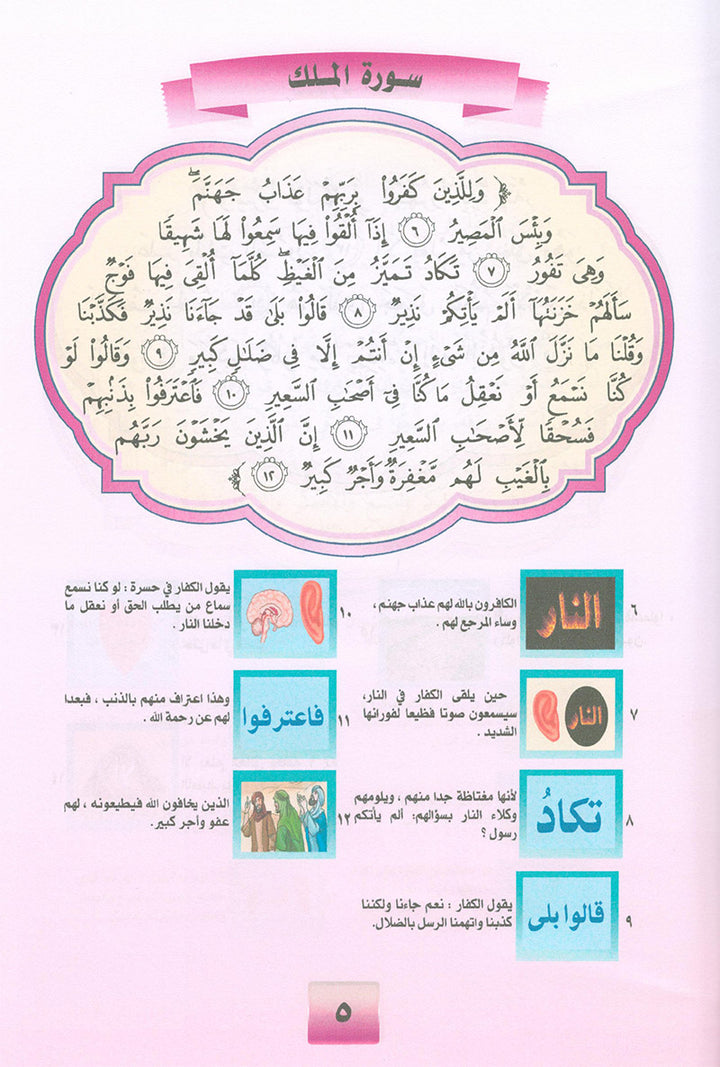 سورة الملك
﴿ وَلِلَّذِينَ كَفَرُوا۟ بِرَبِّهِمْ عَذَابُ جَهَنَّمَ ۖ
وَبِئْسَ ٱلْمَصِيرُ ٦ إِذَآ أُلْقُوا۟ فِيهَا سَمِعُوا۟ لَهَا شَهِيقًا
وَهِىَ تَفُورُ ٧ تَكَادُ تَمَيَّزُ مِنَ ٱلْغَيْظِ ۖ كُلَّمَآ أُلْقِىَ فِيهَا فَوْجٌ
سَأَلَهُمْ خَزَنَتُهَآ أَلَمْ يَأْتِكُمْ نَذِيرٌ ٨ قَالُوا۟ بَلَىٰ قَدْ جَآءَنَا نَذِيرٌ فَكَذَّبْنَا
وَقُلْنَا مَا نَزَّلَ ٱللَّهُ مِن شَىْءٍ إِنْ أَنتُمْ إِلَّا فِى ضَلَٰلٍ كَبِيرٍ ٩ وَقَالُوا۟ لَوْ
كُنَّا نَسْمَعُ أَوْ نَعْقِلُ مَا كُنَّا فِىٓ أَصْحَٰبِ ٱلسَّعِيرِ ١٠ فَٱعْتَرَفُوا۟ بِذَنۢبِهِمْ
فَسُحْقًا لِّأَصْحَٰبِ ٱلسَّعِيرِ ١١ إِنَّ ٱلَّذِينَ يَخْشَوْنَ رَبَّهُم
بِٱلْغَيْبِ لَهُم مَّغْفِرَةٌ وَأَجْرٌ كَبِيرٌ ١٢ ﴾
٦
النار
الكافرون بالله لهم عذاب جهنم ،
وساء المرجع لهم .
٧
النار
حين يلقى الكفار في النار،
سيسمعون صوتا فظيعا لفورانها
الشديد .
٨
تكادُ
لأنها مغتاظة جدا منهم ، ويلومهم
وكلاء النار بسؤالهم: ألم يأتكم
رسول ؟
٩
قالوا بلى
يقول الكفار : نعم جاءنا ولكننا
كذبنا واتهمنا الرسل بالضلال.
١٠
يقول الكفار في حسرة : لو كنا نسمع
سماع من يطلب الحق أو نعقل ما
دخلنا النار .
١١
فاعترفوا
وهذا اعتراف منهم بالذنب ، فبعدا
لهم عن رحمة الله .
١٢
الذين يخافون الله فيطيعونه ، لهم
عفو وأجر كبير.
٥